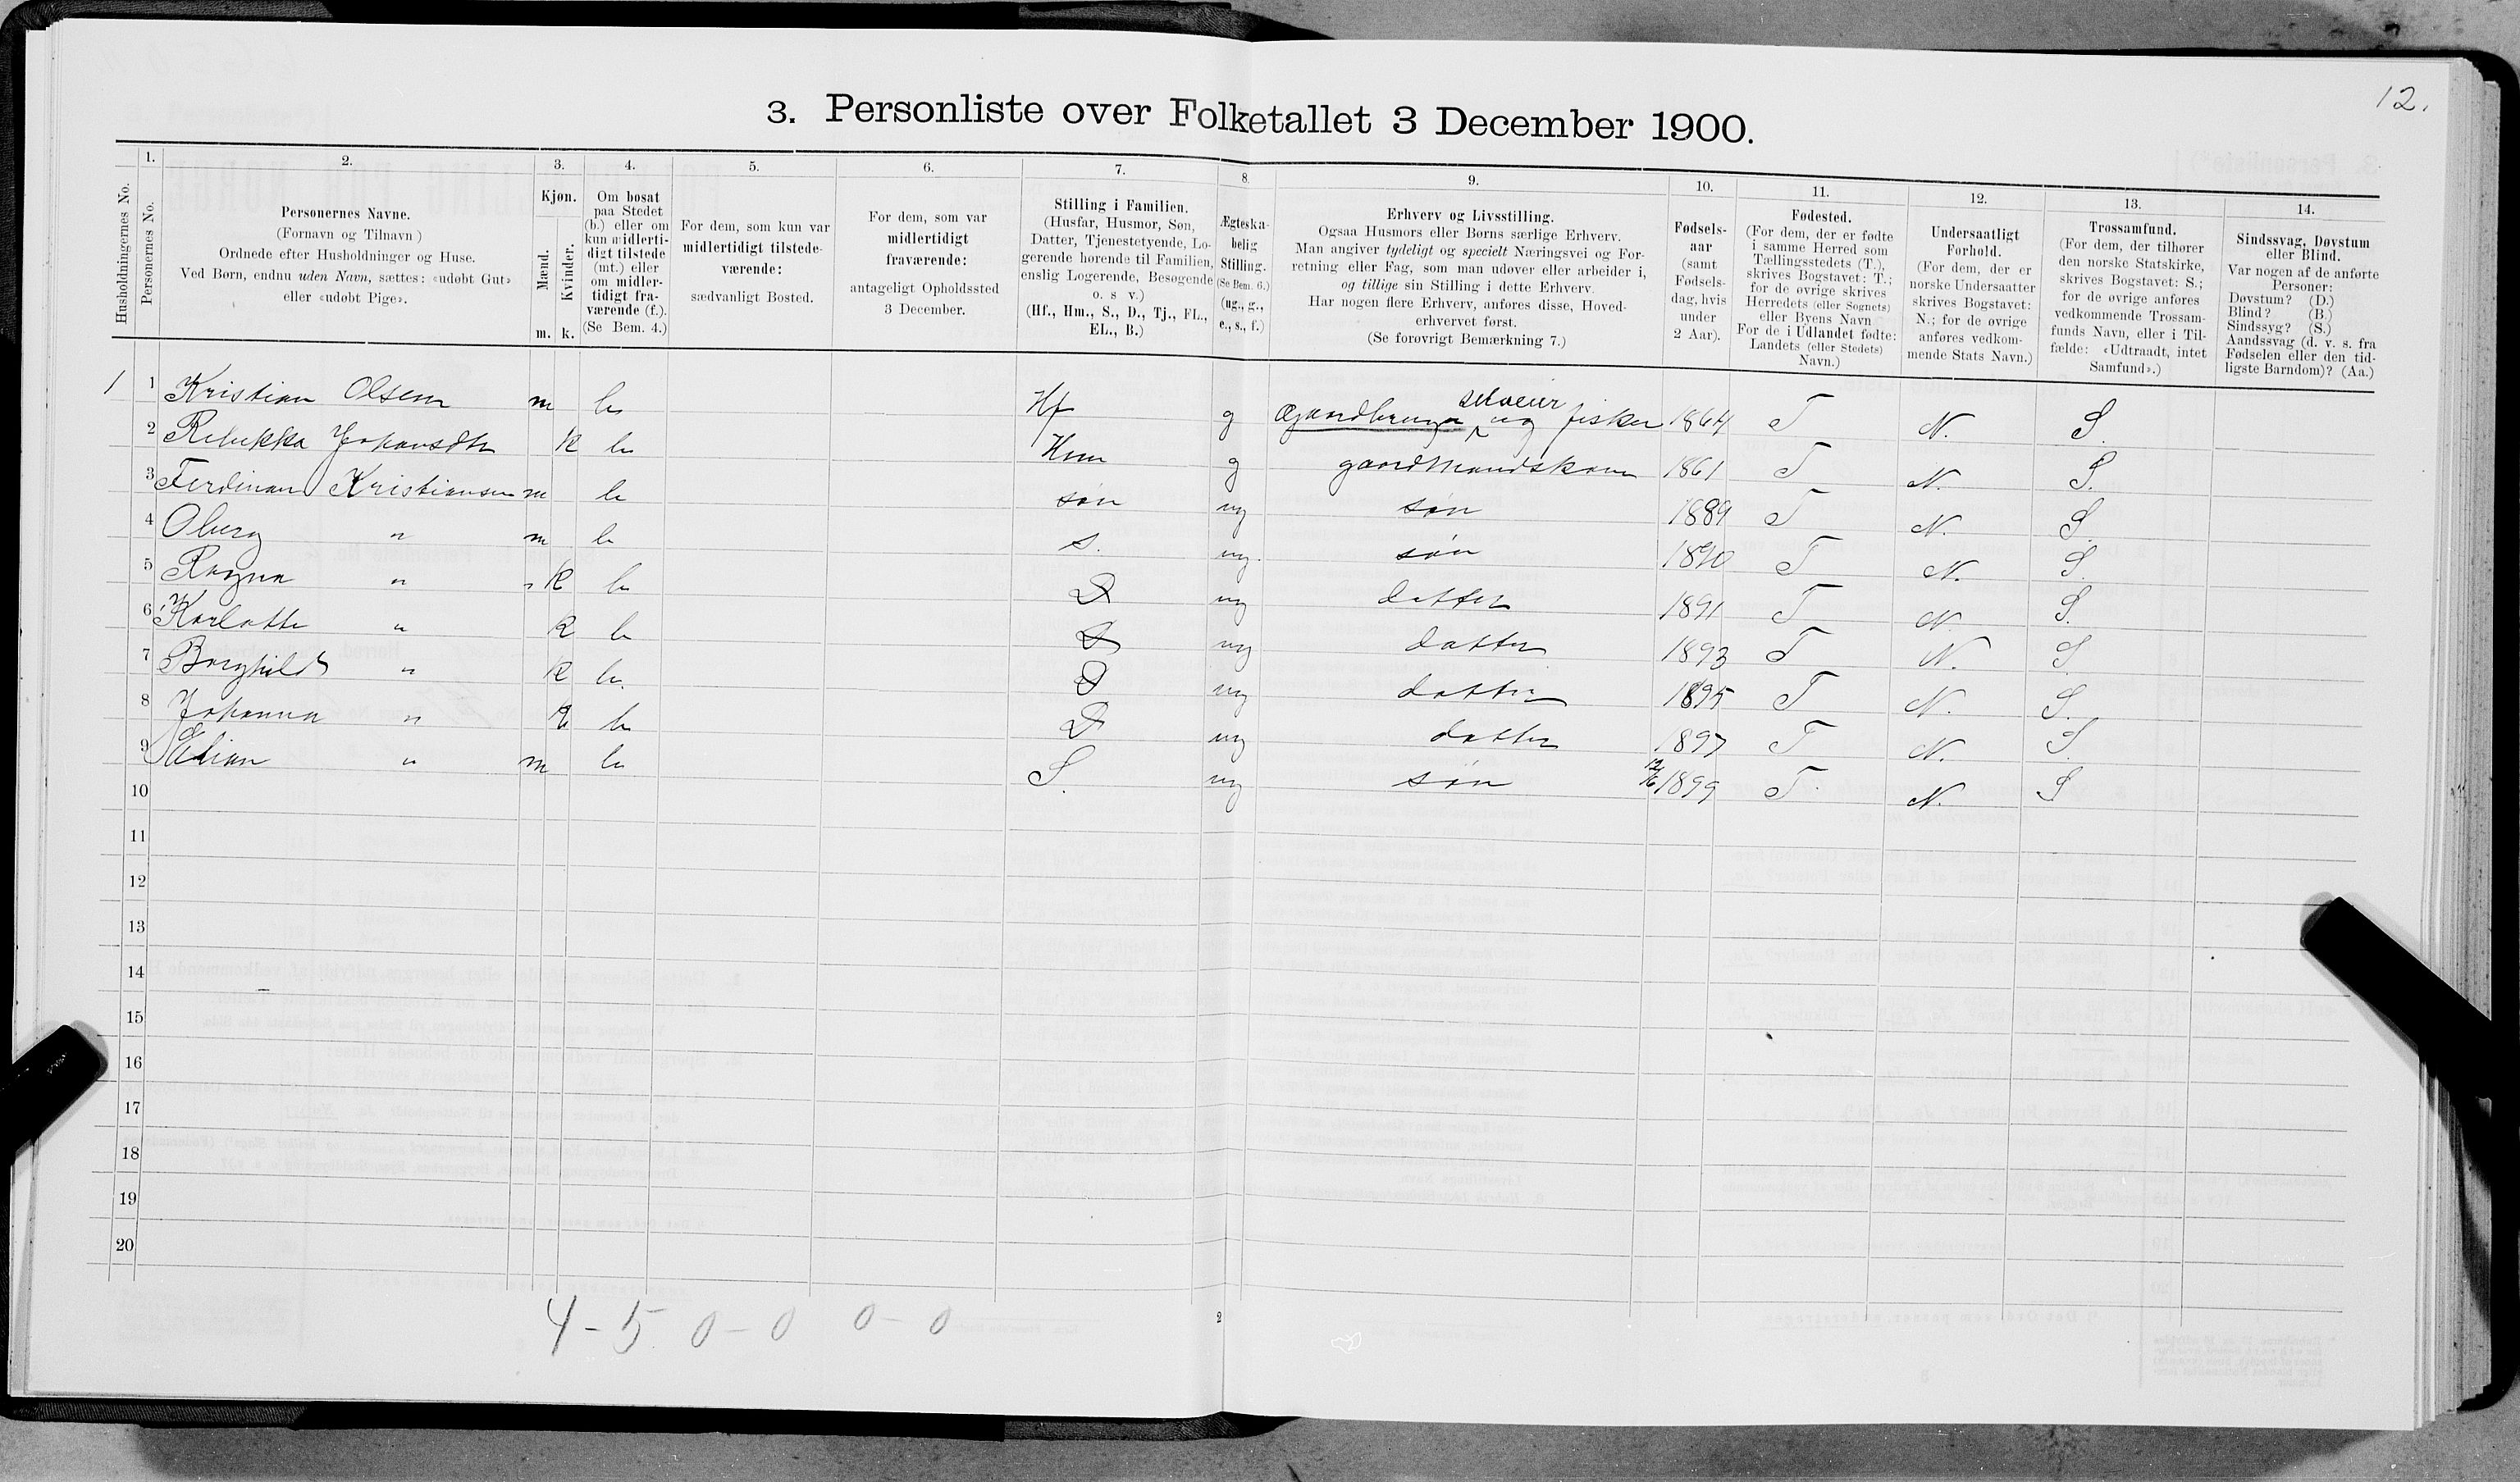 12.
3. Personliste over Folketallet 3 December 1900.
Husholdningernes No.
1. Personernes No.
2. Personernes Navne.
(Fornavn og Tilnavn.)
Ordnede efter Husholdninger og Huse.
Ved Børn, endnu uden Navn, sættes: «udøbt Gut»
eller «udøbt Pige».
3. Kjøn.
Mænd. m.
Kvinder. k.
4. Om bosat
paa Stedet
(b.) eller om
kun midlerti-
digt tilstede
(mt.) eller
om midler-
tidigt fra-
værende (f.).
(Se Bem. 4.)
5. For dem, som kun var
midlertidigt tilstede-
værende:
sædvanligt Bosted.
6. For dem, som var
midlertidigt
fraværende:
antageligt Opholdssted
3 December.
7. Stilling i Familien.
(Husfar, Husmor, Søn,
Datter, Tjenestetyende, Lo-
gerende hørende til Familien,
enslig Logerende, Besøgende
o. s v.)
(Hf., Hm., S., D., Tj., FL.,
EL., B.)
8. Ægteska-
belig
Stilling.
(Se Bem. 6.)
(ug., g.,
e., s., f.)
9. Erhverv og Livsstilling.
Ogsaa Husmors eller Børns særlige Erhverv.
Man angiver tydeligt og specielt Næringsvei og For-
retning eller Fag, som man udøver eller arbeider i,
og tillige sin Stilling i dette Erhverv.
Har nogen flere Erhverv, anføres disse, Hoved-
erhvervet først.
(Se forøvrigt Bemærkning 7.)
10. Fødsels-
aar
(samt
Fødsels-
dag, hvis
under
2 Aar).
11. Fødested.
(For dem, der er fødte
i samme Herred som
Tællingsstedets (T.),
skrives Bogstavet: T.;
for de øvrige skrives
Herredets (eller Sognets)
eller Byens Navn
For de i Udlandet fødte:
Landets (eller Stedets)
Navn.)
12. Undersaatligt
Forhold.
(For dem, der er
norske Undersaatter
skrives Bogstavet:
N.; for de øvrige
anføres vedkom-
mende Stats Navn.)
13. Trossamfund.
(For dem, der tilhører
den norske Statskirke,
skrives Bogstavet: S.;
for de øvrige anføres
vedkommende Trossam-
funds Navn, eller i Til-
fælde: «Udtraadt, intet
Samfund».)
14. Sindssvag, Døvstum
eller Blind.
Var nogen af de anførte
Personer:
Døvstum? (D.)
Blind? (B.)
Sindssyg? (S.)
Aandssvag (d. v. s. fra
Fødselen eller den tid-
ligste Barndom)? (Aa.)
1 1 Kristian Olsen m b Hf g Gaardbruger selveier og fisker 1864 T N. S.
2 Rebekka Johansdtr k b Hm g gaardmandskone 1861 T N. S.
3 Ferdinan Kristiansen m b søn ug søn 1889 T N. S.
4 Oberg " m b s. ug. søn 1890 T N. S.
5 Ragna " " k b D ug datter 1891 T N S.
6 Karlotte " k b D ug datter 1893 T N. S.
7 Borghild " k b. D ug datter 1895 T N. S.
8 Johanna " k b D ug datter 1897 T N. S.
9 " m b S. ug søn 1899 T. N. S
10
11
12
13
14
15
16
17
18
19
20
4 - 5 0 - 0 0 - 0
2